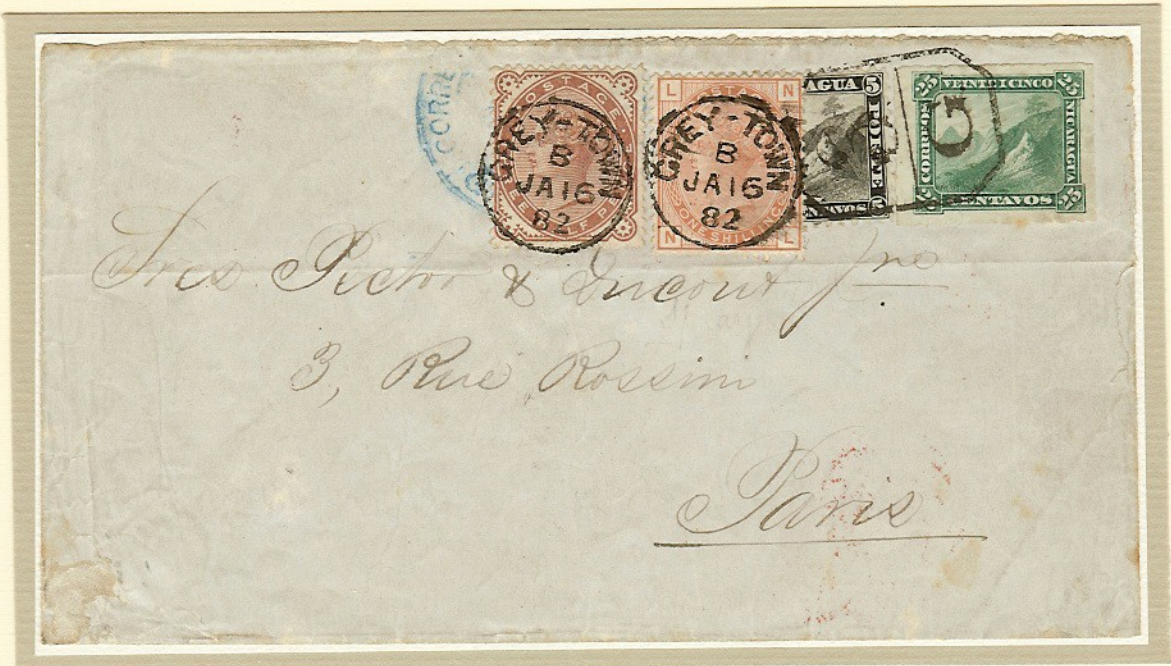 CORRE
POSTAGE
GREY-TOWN
B
JA 16
82
L N
GREY-TOWN
B
JA 16
82
ONE SHILLING
N L
AGUA 5
PORTE
5
G
25 VEINTE I CINCO 25
CORREOS
NICARAGUA
CENTAVOS 25
Sres Pector & Ducout Jne
3, Rue Rossini
Paris